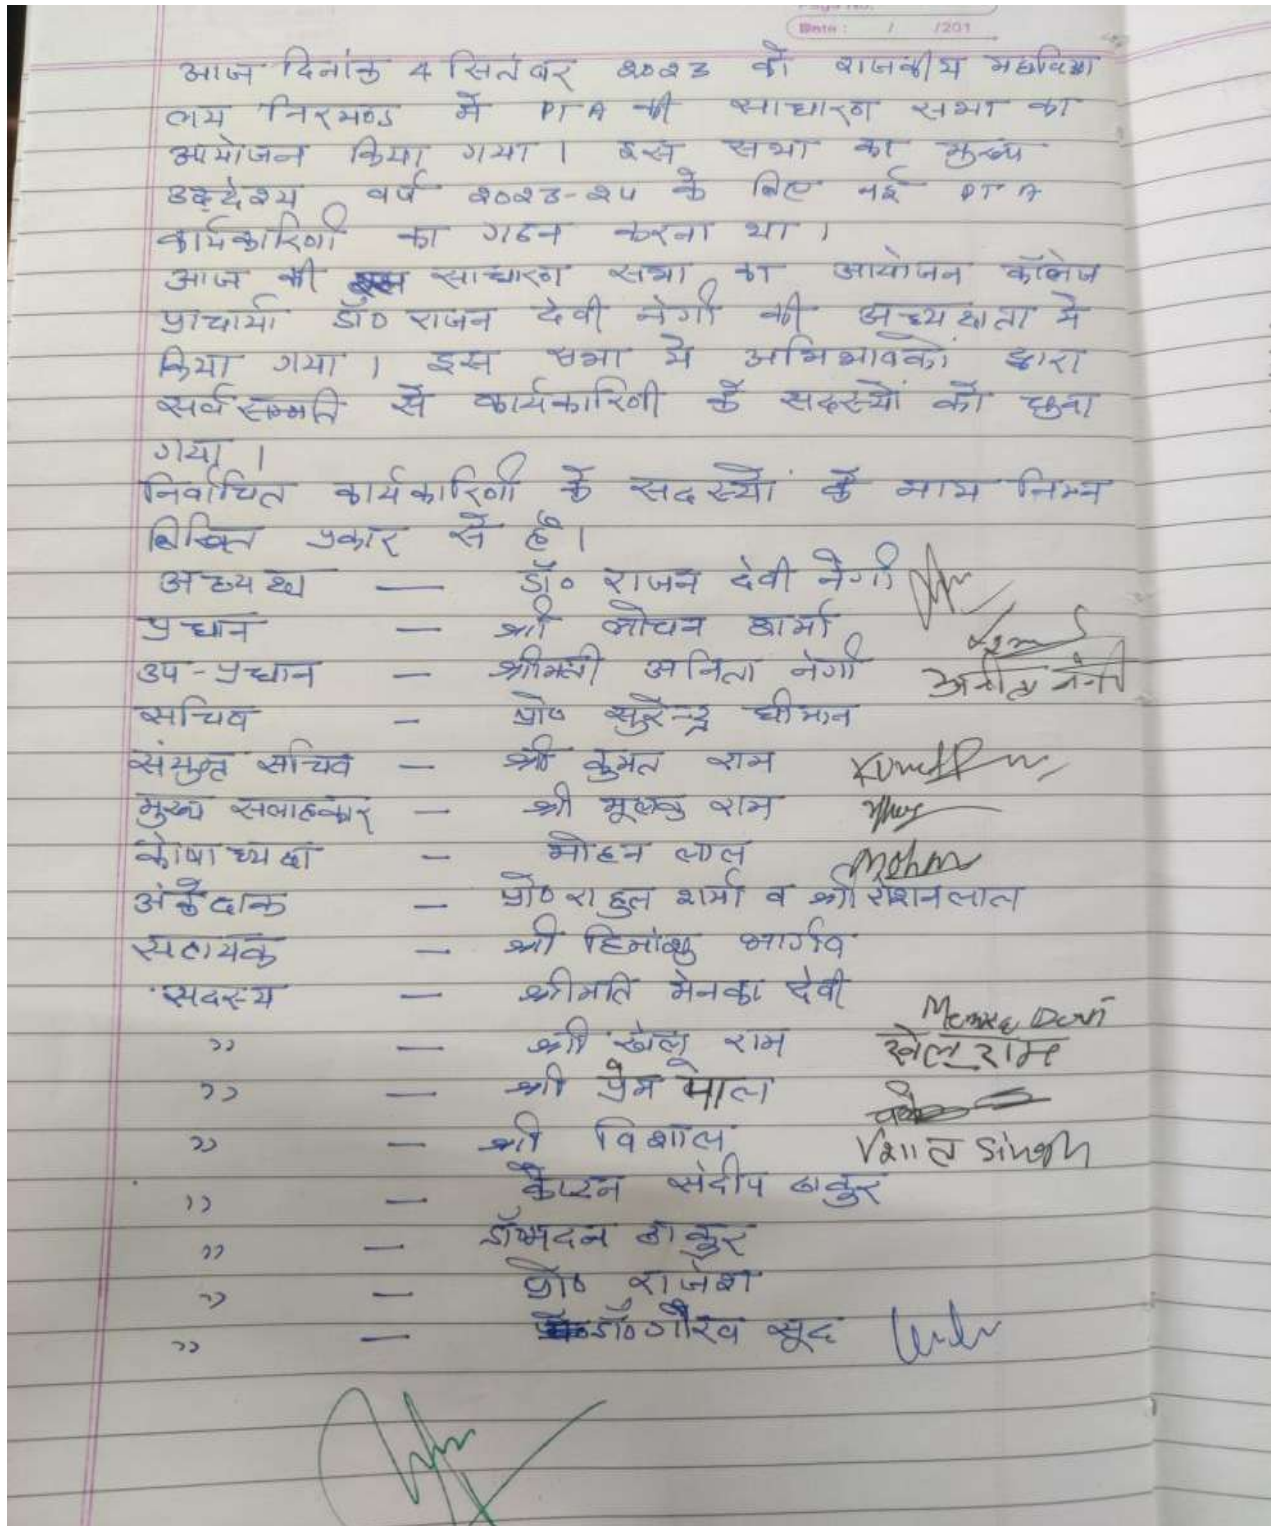 Date : / /201
आज दिनांक 4 सितंबर 2023 को राजकीय महाविद्या
लय निरमण्ड में PTA की साधारण सभा का
आयोजन किया गया । इस सभा का मुख्य
उद्देश्य वर्ष 2023-24 के लिए नई PTA
कार्यकारिणी का गठन करना था ।
आज की साधारण सभा का आयोजन कॉलेज
प्राचार्या डॉ० राजन देवी नेगी की अध्यक्षता में
किया गया । इस सभा में अभिभावकों द्वारा
सर्वसम्मति से कार्यकारिणी के सदस्यों को चुना
गया ।
निर्वाचित कार्यकारिणी के सदस्यों के नाम निम्न
लिखित प्रकार से है ।
अध्यक्ष — डॉ० राजन देवी नेगी
प्रधान — श्री लोचन शर्मा
उप-प्रधान — श्रीमती अनिता नेगी अनीता नेगी
सचिव — प्रो० सुरेन्द्र धीमान
संयुक्त सचिव — श्री कुमत राम
मुख्य सलाहकार — श्री मूलकु राम
कोषाध्यक्ष — मोहन लाल Mohan
अंकेक्षक — प्रो० राहुल शर्मा व श्री रोशनलाल
सहायक — श्री हिमांशु भार्गव
सदस्य — श्रीमति मेनका देवी Menka Devi
,, — श्री खेलू राम खेलू राम
,, — श्री प्रेम पाल
,, — श्री विशाल Singh
,, — कैप्टन संदीप ठाकुर
,, — डॉ० मदन ठाकुर
,, — प्रो० राजेश
,, — डॉ० गौरव सूद